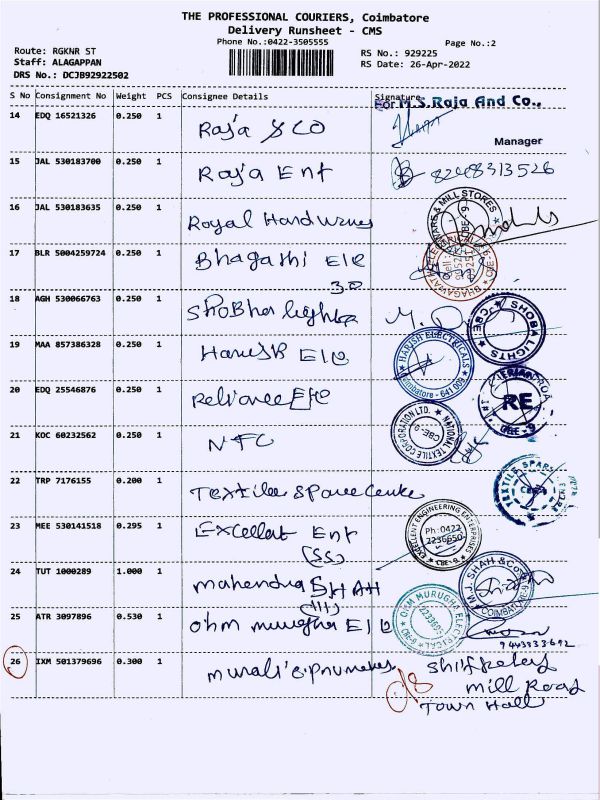 THE PROFESSIONAL COURIERS, Coimbatore
Delivery Runsheet - CMS
Phone No.:0422-3505555
Page No.:2
Route: RGKNR ST
Staff: ALAGAPPAN
DRS No.: DCJB92922502
RS No.: 929225
RS Date: 26-Apr-2022
S No Consignment No Weight PCS Consignee Details Signature
For M.S.Raja And Co.,
14 EDQ 16521326 0.250 1 Raja & Co
Manager
15 JAL 530183700 0.250 1 Raja Ent 8248313526
16 JAL 530183635 0.250 1 Royal Hardwares
& MILL STORES
17 BLR 5004259724 0.250 1 Bhagathi Ele
30
18 AGH 530066763 0.250 1 Shobha lights
SHOBA LIGHTS CBE
19 MAA 857386328 0.250 1 Harish Ele
HARISH ELECTRICALS
Coimbatore - 641 009
20 EDQ 25546876 0.250 1 Reliance Ele
RE
21 KOC 60232562 0.250 1 NTC
NATIONAL TEXTILE CORPORATION LTD.
CBE-9
22 TRP 7176155 0.200 1 Textile Spare Centre
TEXTILE SPARES
23 MEE 530141518 0.295 1 Excellent Ent
(SS)
EXCELLENT ENGINEERING ENTERPRISES
Ph:0422
2236650
CBE-9
24 TUT 1000289 1.000 1 Mahendra SHAH
M.J. SHAH & CO
COIMBATORE
25 ATR 3097896 0.530 1 Ohm murugha Ele
OHM MURUGHA ELECTRICAL
CBE-9
26 IXM 501379696 0.300 1 murali
Mill Road
Town Hall